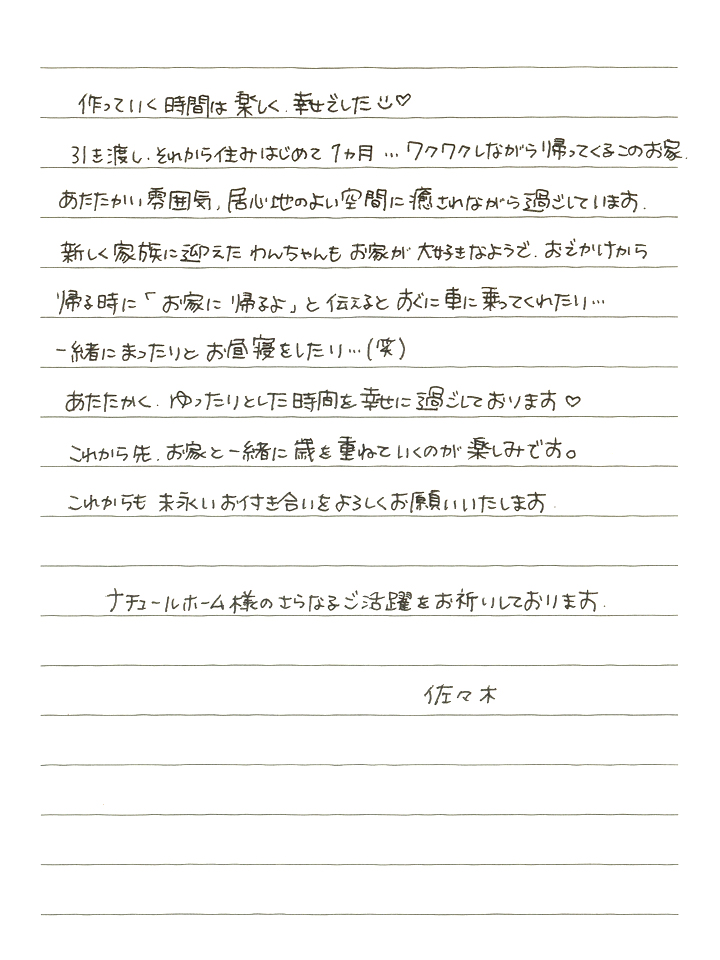 作っていく時間は楽しく、幸せでした☺♡
引き渡し、それから住みはじめて1ヵ月…ワクワクしながら帰ってくるこのお家、
あたたかい雰囲気、居心地のよい空間に癒されながら過ごしています。
新しく家族に迎えたわんちゃんもお家が大好きなようで、おでかけから
帰る時に「お家に帰るよ」と伝えるとすぐに車に乗ってくれたり…
一緒にまったりとお昼寝をしたり…(笑)
あたたかく、ゆったりとした時間を幸せに過ごしております♡
これから先、お家と一緒に歳を重ねていくのが楽しみです。
これからも末永いお付き合いをよろしくお願いいたします。
ナチュールホーム様のさらなるご活躍をお祈りしております。
佐々木